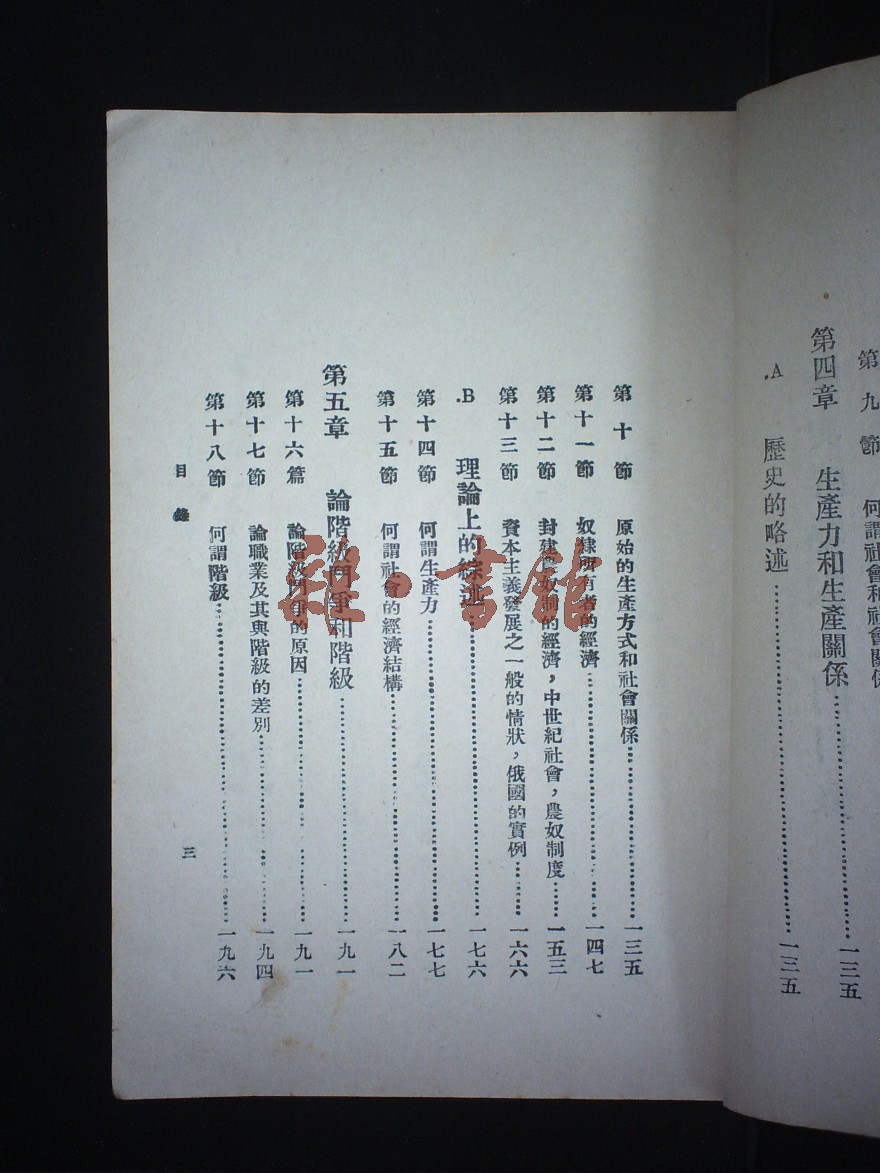 第九節 何謂社會和社會關係
第四章 生產力和生產關係……一三五
.A 歷史的略述……一三五
第十節 原始的生產方式和社會關係……一三五
第十一節 奴隸所有者的經濟……一四七
第十二節 封建農奴制的經濟，中世紀社會，農奴制度……一五三
第十三節 資本主義發展之一般的情狀，俄國的實例……一六六
.B 理論上的綜述……一七六
第十四節 何謂生產力……一七七
第十五節 何謂社會的經濟結構……一八二
第五章 論階級鬥爭和階級……一九一
第十六篇 論階級鬥爭的原因……一九一
第十七節 論職業及其與階級的差別……一九四
第十八節 何謂階級……一九六
目錄
三
雜·書館